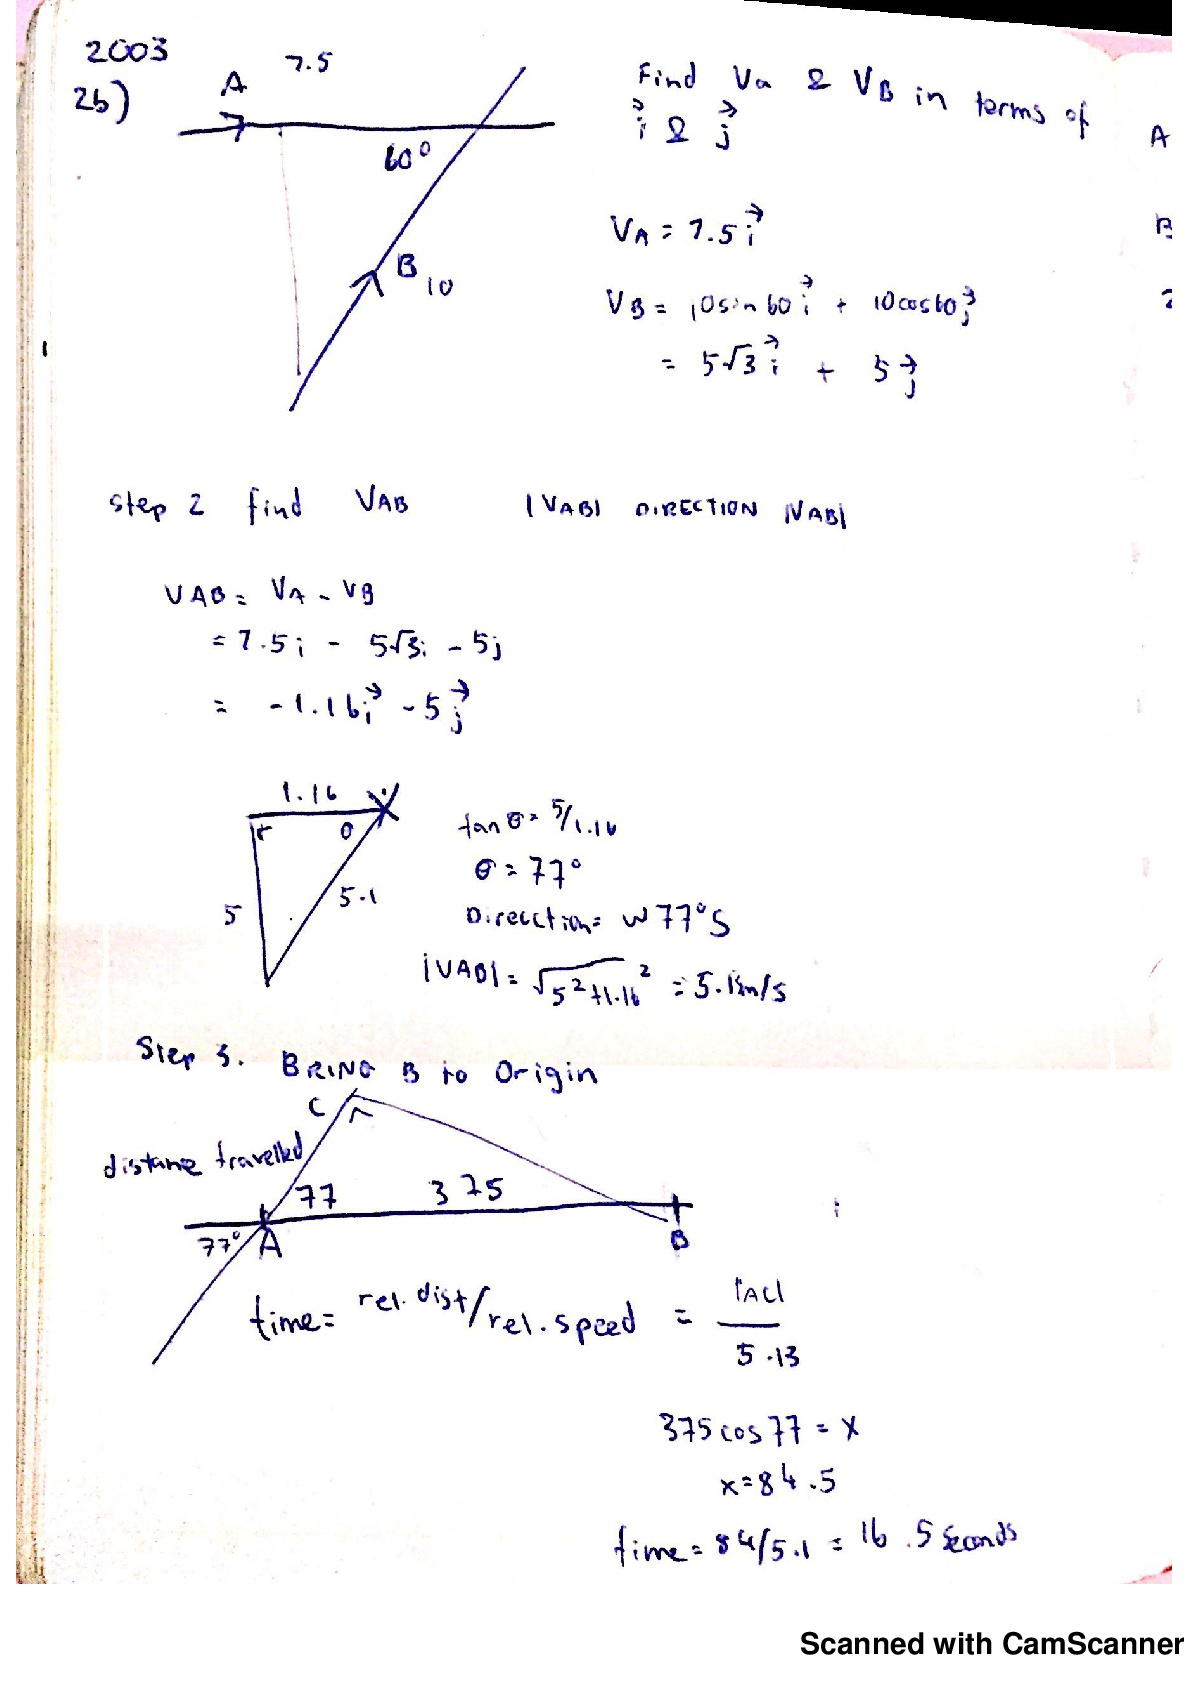 2003
2b)
A
7.5
60°
B
10
Find Va & VB in terms of
i & j
VA = 7.5 i
VB = 10 sin 60 i + 10 cos 60 j
= 5√3 i + 5 j
A
B
step 2 find VAB |VAB| DIRECTION |VAB|
VAB = VA - VB
= 7.5 i - 5√3 i - 5 j
= -1.16 i - 5 j
1.16
θ
5
5.1
tan θ = 5/1.16
θ = 77°
Direcction = W 77° S
|VAB| = √5² + 1.16² = 5.13m/s
Step 3. BRING B to Origin
C
distane travelled
77
375
77°
A
B
time = rel. dist/rel. speed = |AC|
5.13
375 cos 77 = x
x = 84.5
time = 84/5.1 = 16.5 seconds
Scanned with CamScanner